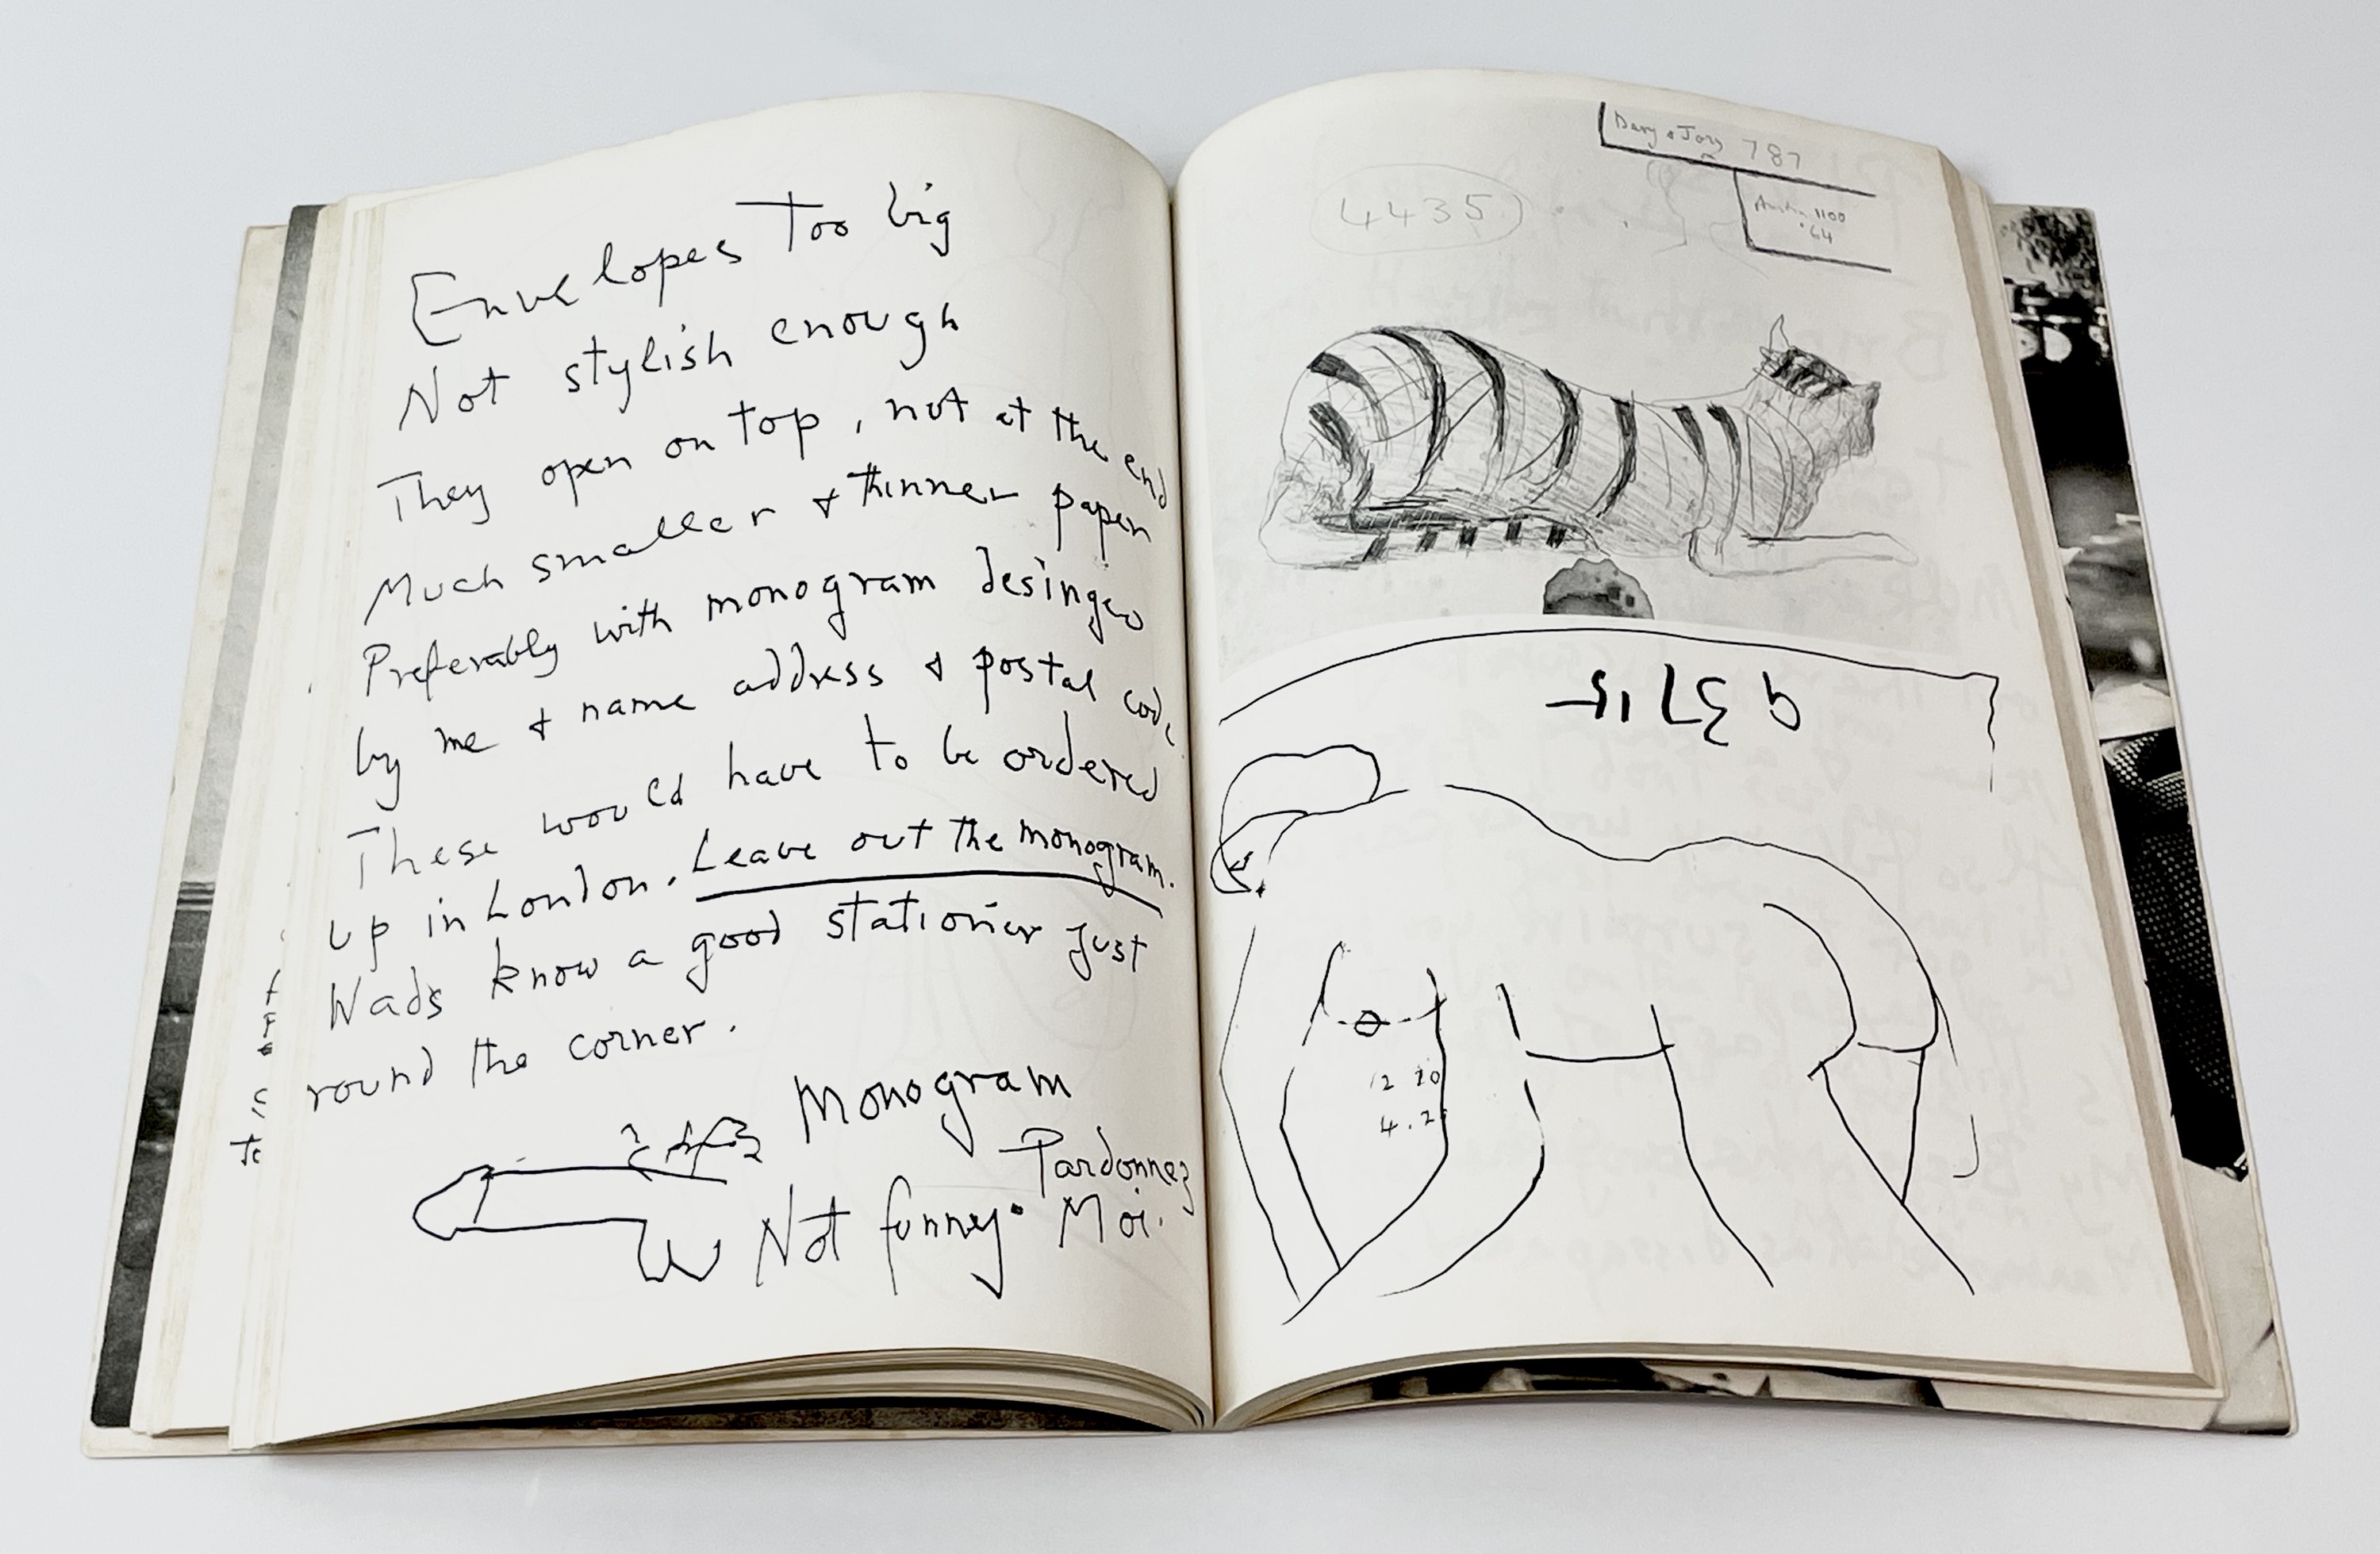 Envelopes Too big
Not stylish enough
They open on top, not at the end
Much smaller & thinner paper
Preferably with monogram desinged
by me & name address & postal code
These would have to be ordered
up in London. Leave out the monogram.
Wads know a good stationier just
round the corner.
Monogram
Pardonnez
Not funny. Moi.
787
4435
Austin 1100
'64
12 20
4.2